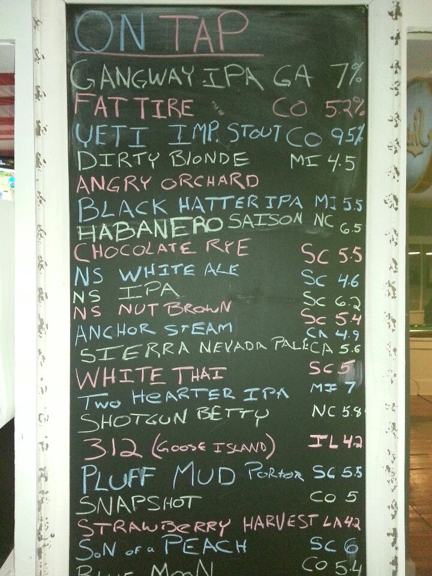 ON TAP
GANGWAY IPA GA 7%
FAT TIRE CO 5.2%
YETI IMP. STOUT CO 9.5%
DIRTY BLONDE MI 4.5
ANGRY ORCHARD
BLACK HATTER IPA MI 5.5
HABANERO SAISON NC 6.5
CHOCOLATE RYE SC 5.5
NS WHITE ALE SC 4.6
NS IPA SC 6.2
NS NUT BROWN SC 5.4
ANCHOR STEAM CA 4.9
SIERRA NEVADA PALE CA 5.6
WHITE THAI SC 5
TWO HEARTER IPA MI 7
SHOTGUN BETTY NC 5.8
312 (GOOSE ISLAND) IL 4.2
PLUFF MUD PORTER SC 5.5
SNAPSHOT CO 5
STRAWBERRY HARVEST LA 4.2
SON of a PEACH SC 6
BLUE MOON CO 5.4